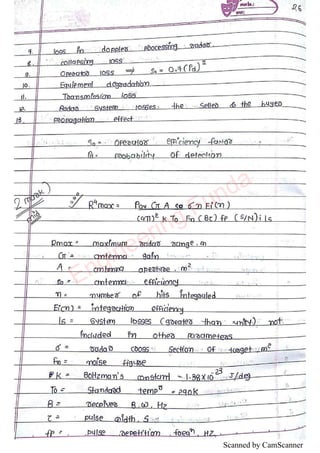 26
9. loss in doppler processing radar.
8. collapsing loss
9. Operator loss ⇒ S0 = 0.7 (Pd)²
10. Equipment degradation
11. Transmission loss
12. Radar System losses: the Seller & the buyer
13. Propagation effect
S0 = operator efficiency factor
Pd = probability of detection
2 mark)
R⁴max = Pav G A so σ n Ei(n)
(4π)² K To Fn (Bτ) fp (S/N)i Ls
Rmax = maximum radar range, m
G = antenna gain
A = antenna aperture, m²
so = antenna efficiency
n = number of hits integrated
E(n) = integration efficiency
Ls = System losses (greater than unity) not
included in other parameters
σ = radar cross section of target, m²
Fn = noise figure
K = Boltzman's constant = 1.38X10⁻²³ J/deg
To = Standard temp = 290K
B = Receiver B.W, Hz
τ = pulse width, S
fp = pulse repetition freqn, HZ.
Engineering
Scanned by CamScanner